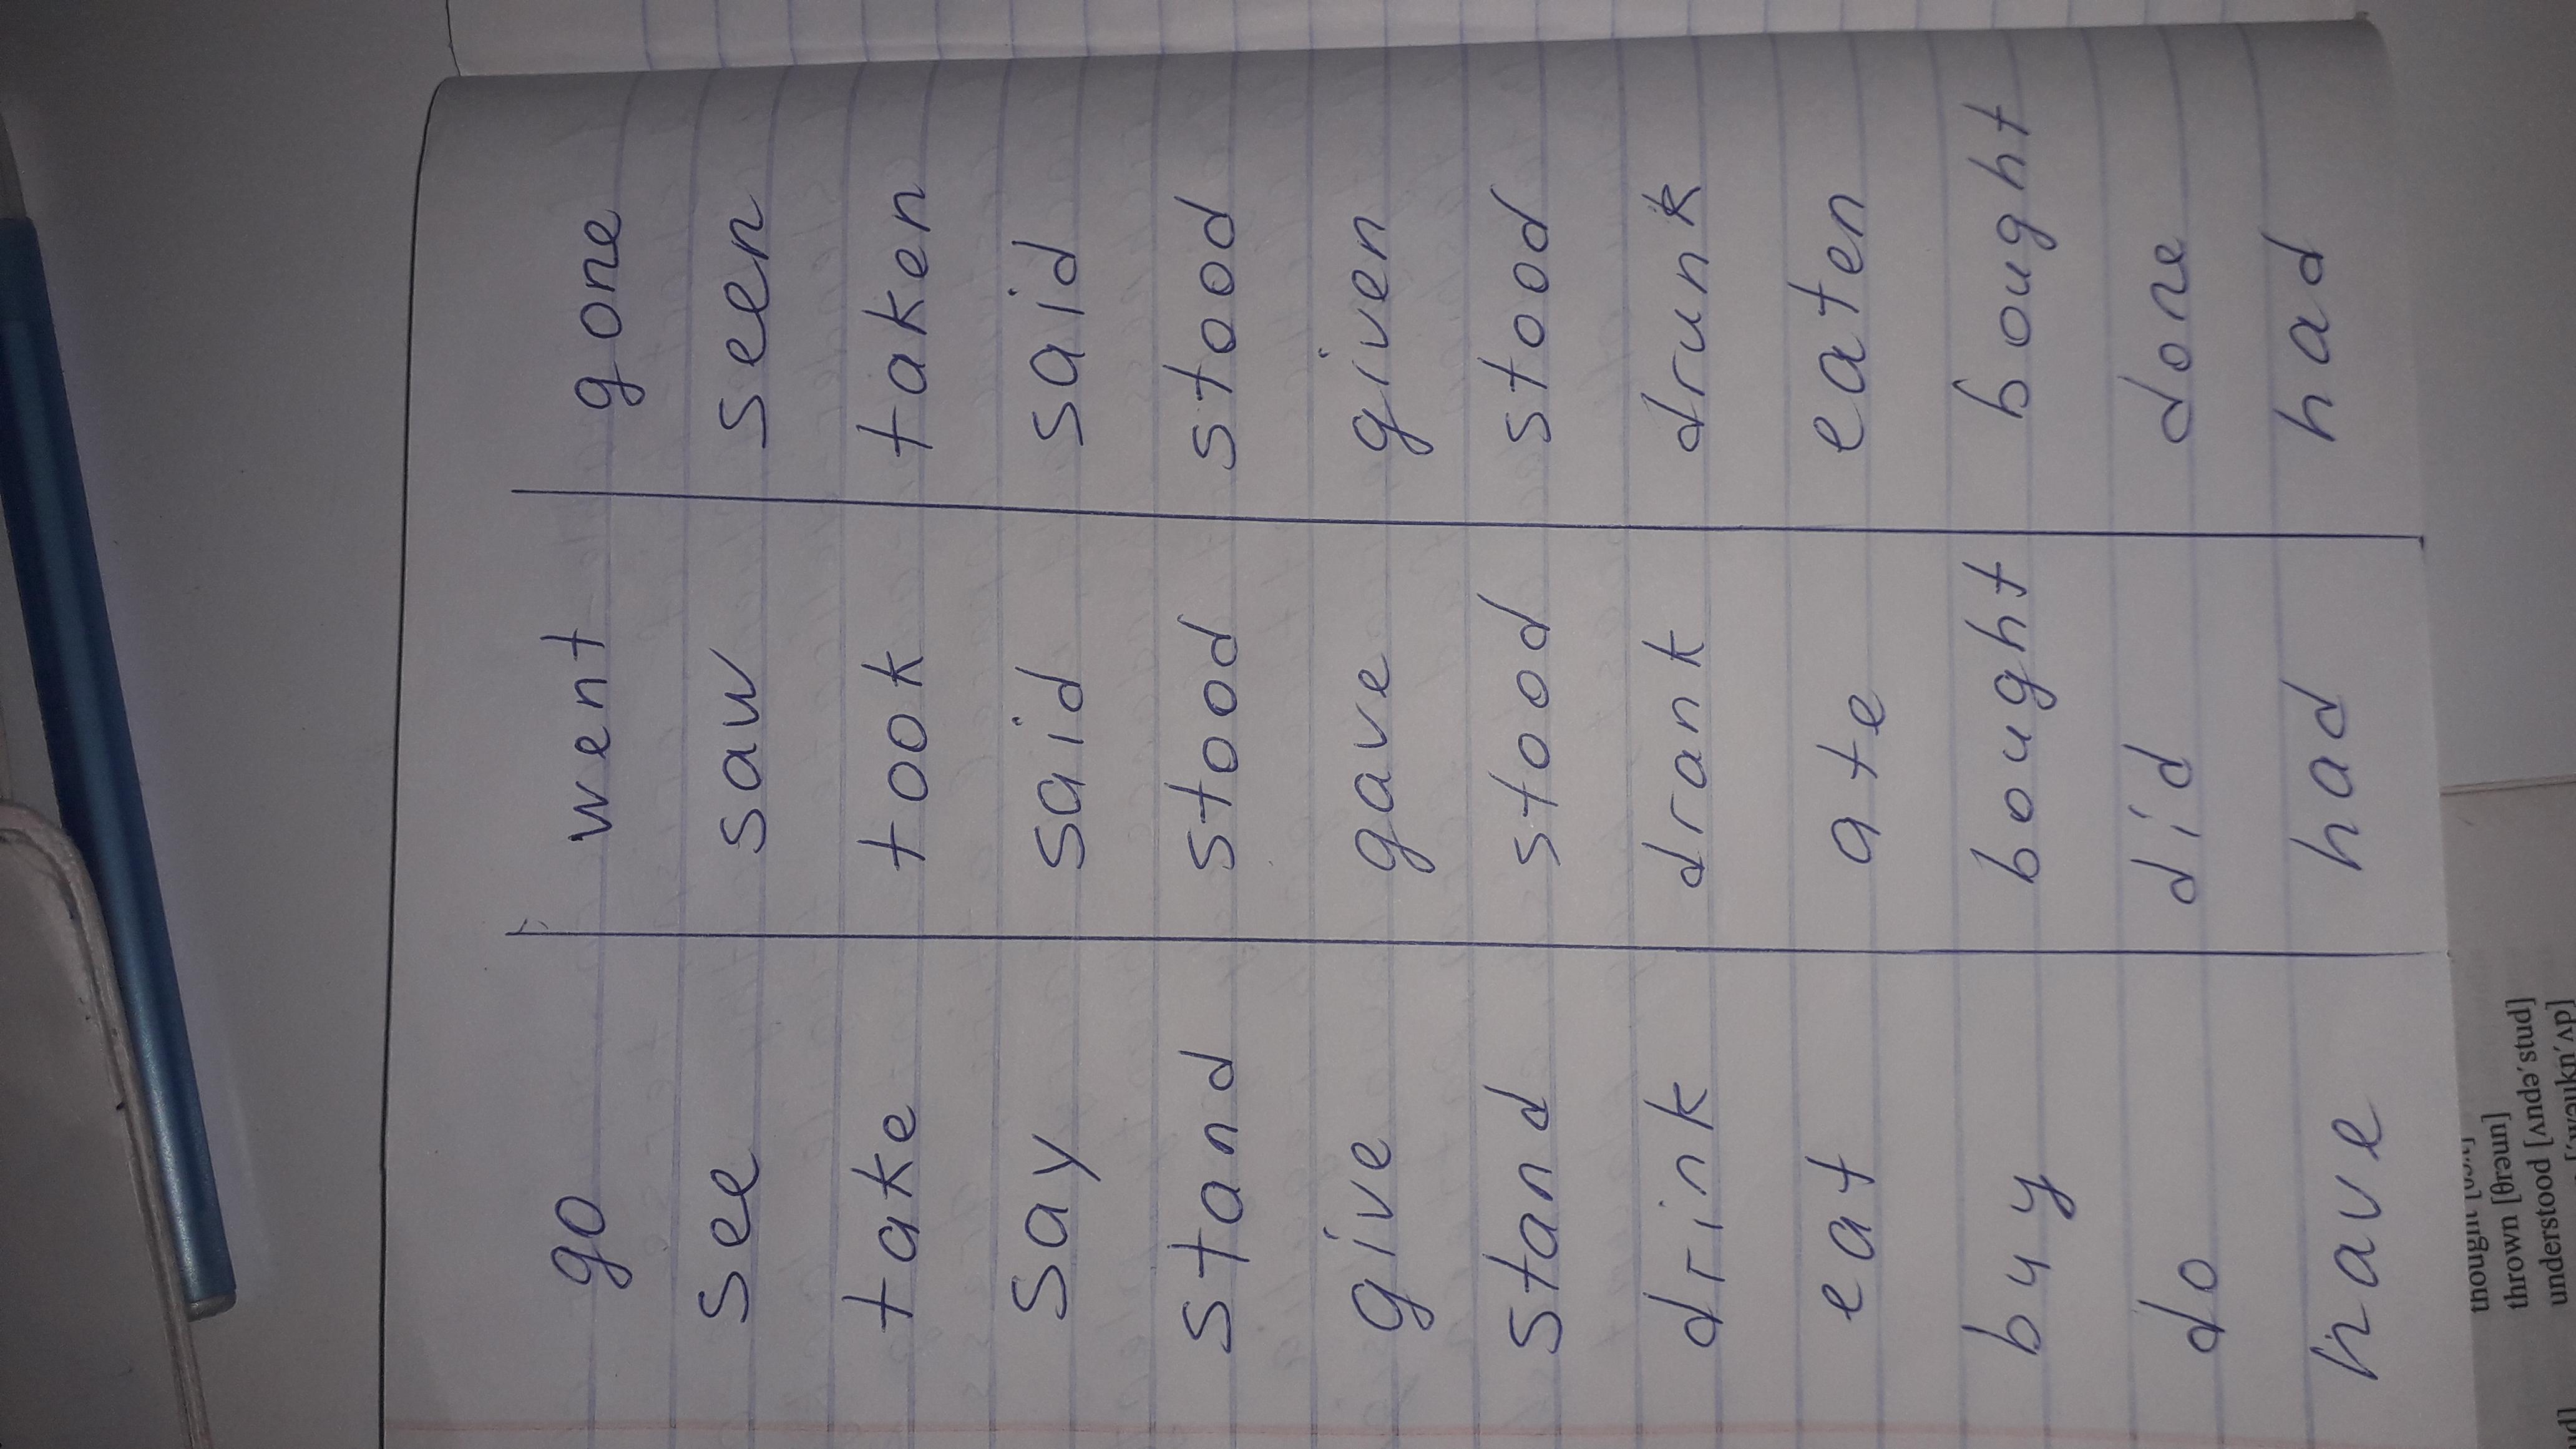 go went gone
see saw seen
take took taken
say said said
stand stood stood
give gave given
stand stood stood
drink drank drunk
eat ate eaten
buy bought bought
do did done
have had had
thrown [θrəun]
understood [ʌndə'stud]